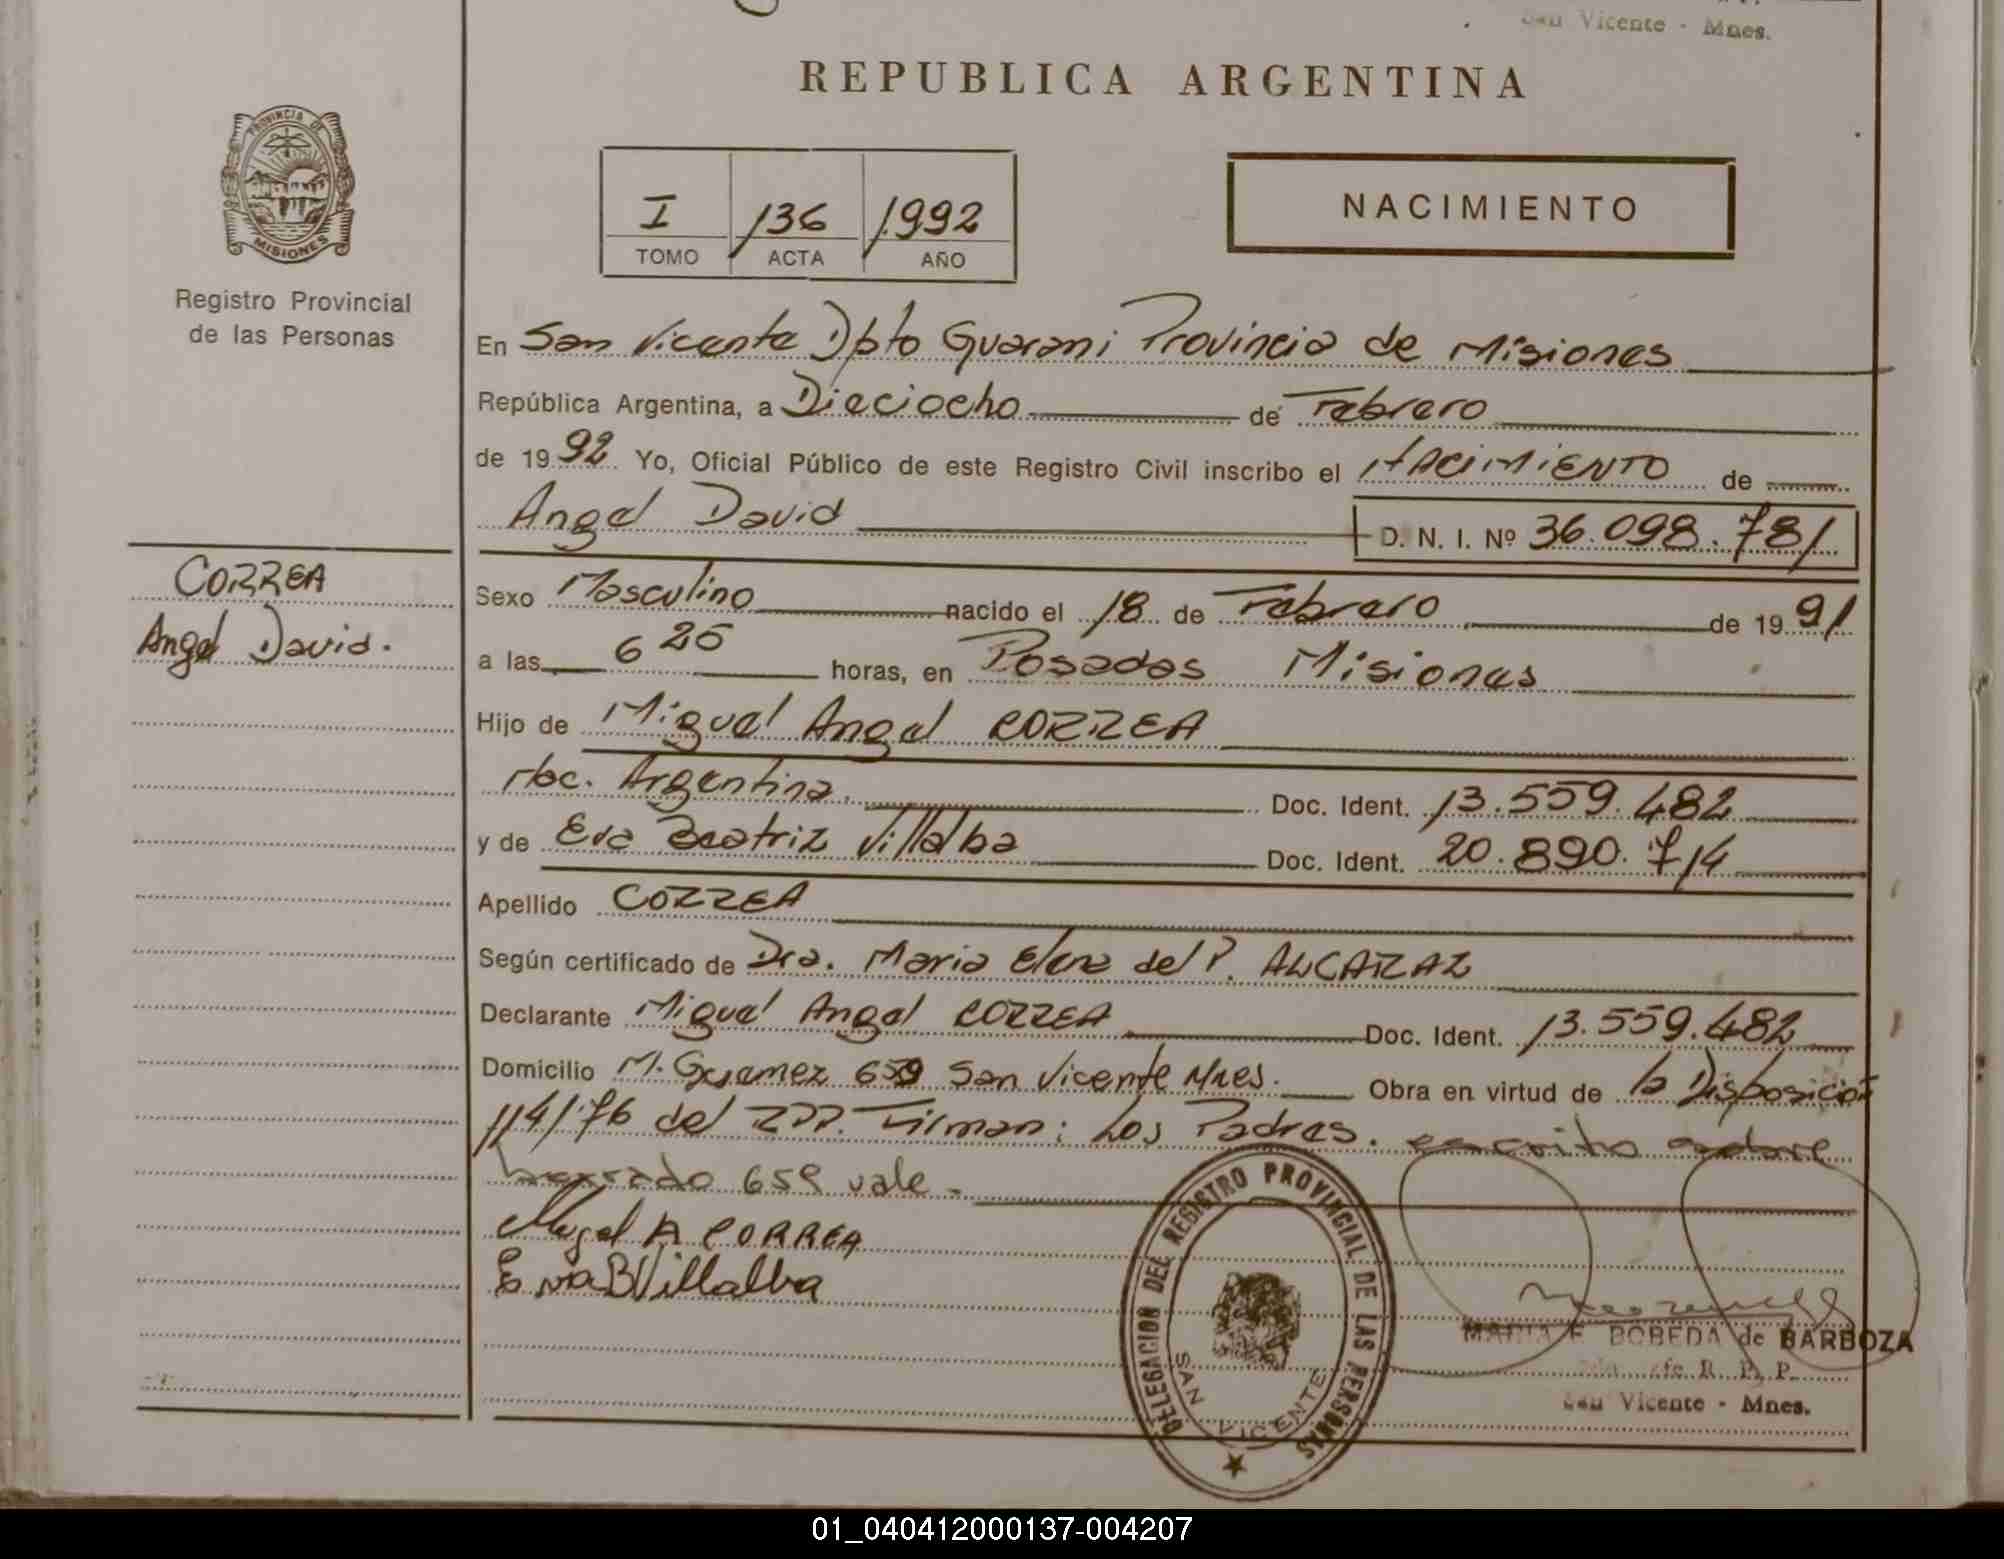 San Vicente - Mnes.
REPUBLICA ARGENTINA
PROVINCIA DE
MISIONES
Registro Provincial
de las Personas
I 136 1992
TOMO ACTA AÑO
NACIMIENTO
En San Vicente Dpto Guarani Provincia de Misiones
República Argentina, a Dieciocho de Febrero
de 1992 Yo, Oficial Público de este Registro Civil inscribo el NACIMIENTO de
Angel David D. N. I. Nº 36.098.781
CORREA
Angel David.
Sexo Masculino nacido el 18 de Febrero de 1991
a las 6 25 horas, en Posadas Misiones
Hijo de Miguel Angel CORREA
Nac. Argentina. Doc. Ident. 13.559.482
y de Eva Beatriz Villalba Doc. Ident. 20.890.714
Apellido CORREA
Según certificado de Dra. Maria Elena del P. ALCARAZ
Declarante Miguel Angel CORREA Doc. Ident. 13.559.482
Domicilio M. Guemez 659 San Vicente Mnes. Obra en virtud de la Disposición
114/76 del RPP. Firman: Los Padres. escrito sobre
borrado 659 vale.
Miguel A CORREA
Eva B Villalba
DELEGACION DEL REGISTRO PROVINCIAL DE LAS PERSONAS
SAN VICENTE
MARIA E. BOBEDA de BARBOZA
R. P. P.
San Vicente - Mnes.
01_040412000137-004207